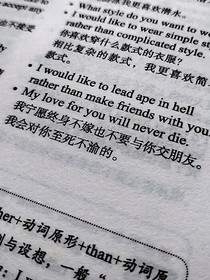 accept any
• What style do you want to w
I would like to wear simple st
rather than complicated style.
你喜欢穿什么款式的衣服？
相比复杂的款式，我更喜欢简
款式。
• I would like to lead ape in hell
rather than make friends with you.
• My love for you will never die.
我宁愿终身不嫁也不要与你交朋友。
我会对你至死不渝的。
her+动词原形+than+动词原
别与设想，一般“